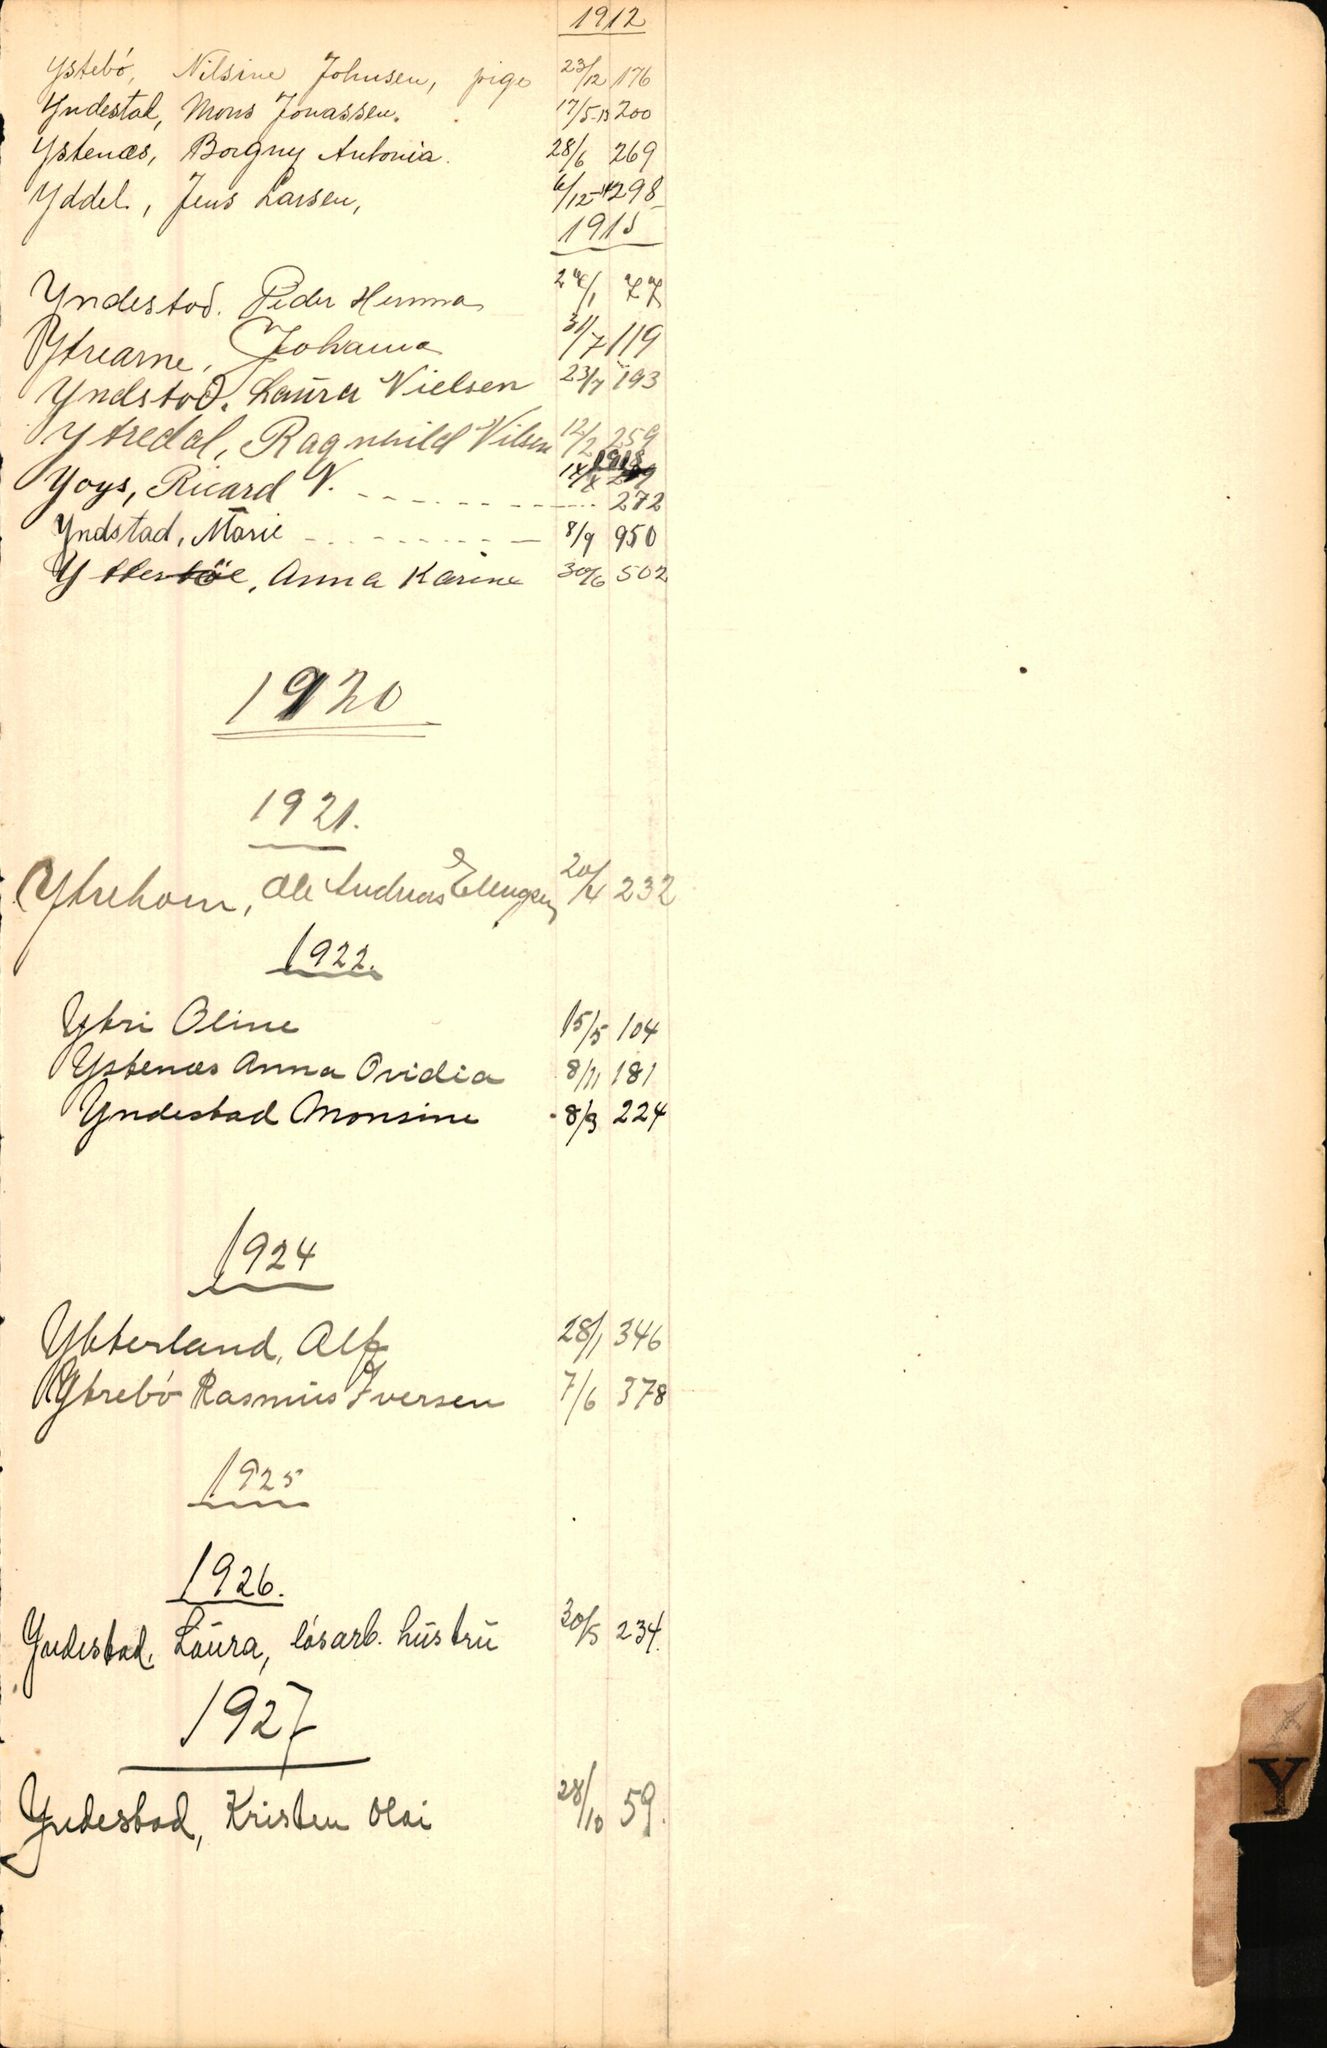 1912
Ystebó, Nilsine Johnsen, pige 23/12 176
Yndestad, Mons Jonassen. 17/5-13 200
Ystenæs, Borgny Antonia. 28/6 269
Yddel, Jens Larsen, 6/12-14 298
1915
Yndestad. Peder Herman 24/1 77
Ytrearne, Johanna 31/7 119
Yndstad. Laura Nielsen 23/7 193
Ytredal, Ragnhild Nilsen 12/2 259
1918
Yoys, Ricard V. 272
Yndstad, Marie 8/9 950
Anna Karine 30/6 502
1920
1921.
Ytrehorn, Ole Andreas Ellingsen 20/4 232
1922.
Ytri Oline 15/5 104
Ystenæs Anna Ovidia 8/11 181
Yndestad Monsine 8/9 224
1924
Ytterland, Alf 28/1 346
Ytrebó Rasmus Iversen 7/6 378
1925
1926.
Yndestad, Laura, lósarb. hustru 30/5 234.
1927
Yndestad, Kristen Olai 28/10 59.
Y